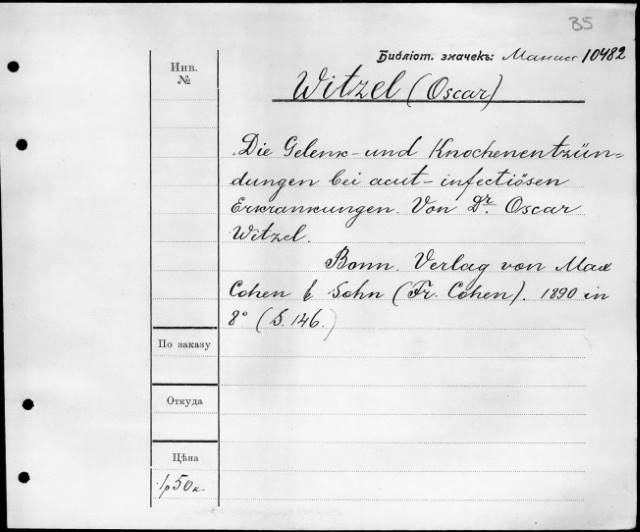 35
Библіот. значекъ: Манасс 10482
Инв.
№
Witzel (Oscar)
Die Gelenk- und Knochenentzün=
dungen bei acut-infectiösen
Erkrankungen. Von Dr. Oscar
Witzel.
Bonn. Verlag von Max
Cohen & Sohn (Fr. Cohen). 1890 in
8° (S. 146.)
По заказу
Откуда
Цѣна
1р 50к.